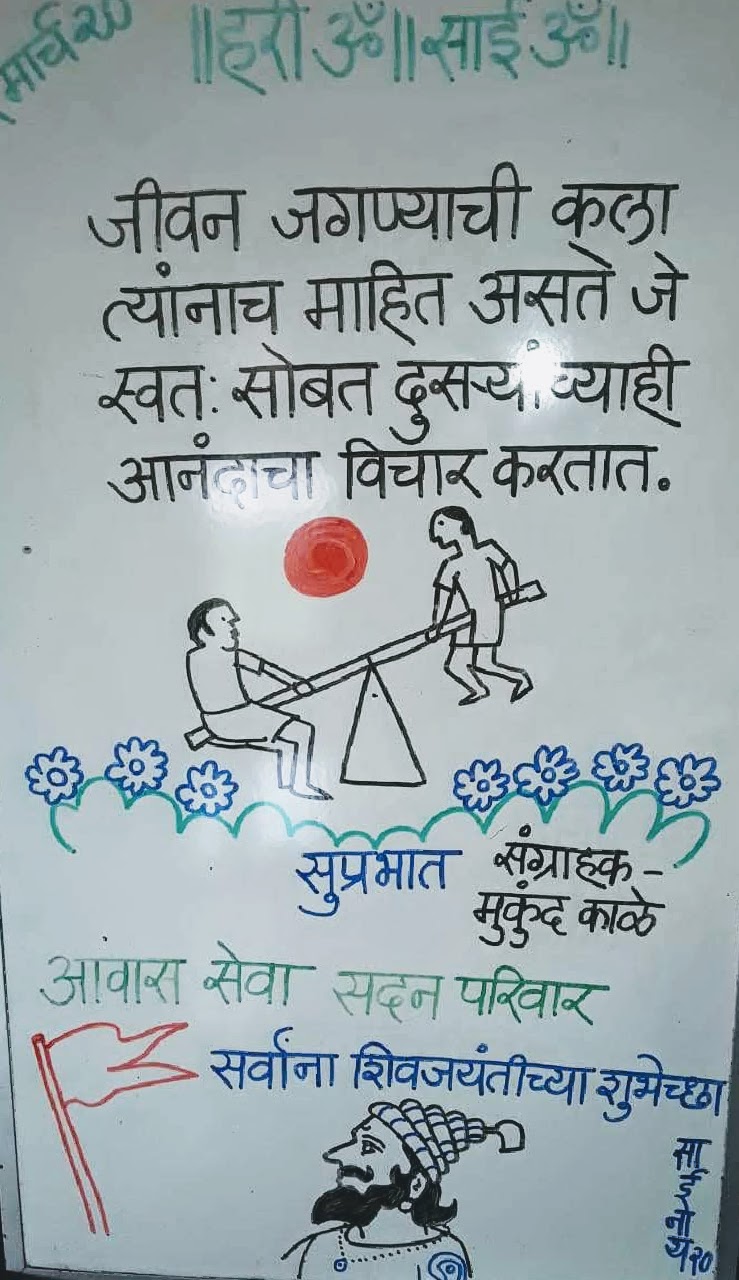 मार्च २०
॥हरी ॐ॥साई ॐ॥
जीवन जगण्याची कला
त्यांनाच माहित असते जे
स्वतः सोबत दुसऱ्यांच्याही
आनंदाचा विचार करतात.
सुप्रभात
संग्राहक -
मुकुंद काळे
आवास सेवा सदन परिवार
सर्वांना शिवजयंतीच्या शुभेच्छा